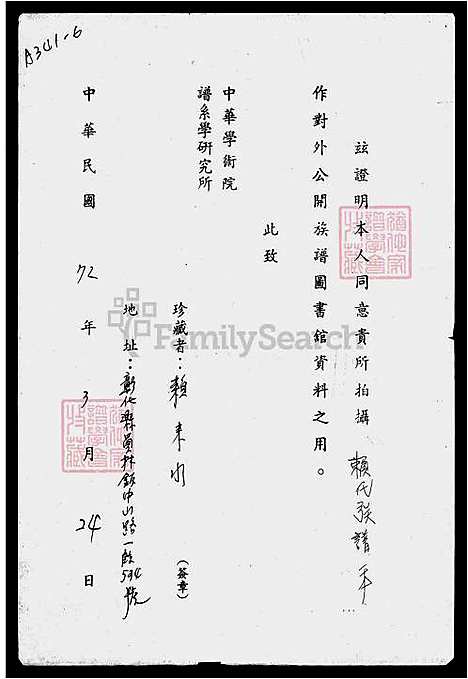 A341-6
茲證明本人同意貴所拍攝 賴氏族譜
作對外公開族譜圖書館資料之用。
此致
中華學術院
譜系學研究所
珍藏者：賴來水 (簽章)
地址：彰化縣員林鎮中山路一段594號
中華民國72年3月24日
FamilySearch